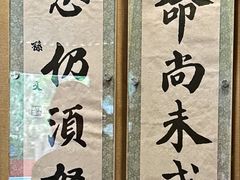 命尚未成
志仍須努
孫文